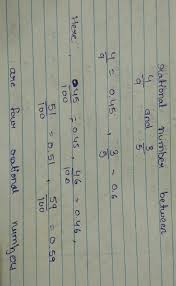 rational number between
4/9 and 3/5
4/9 = 0.45 , 3/5 = 0.6
Here,
45/100 = 0.45, 46/100 = 0.46,
51/100 = 0.51, 59/100 = 0.59
are four rational number